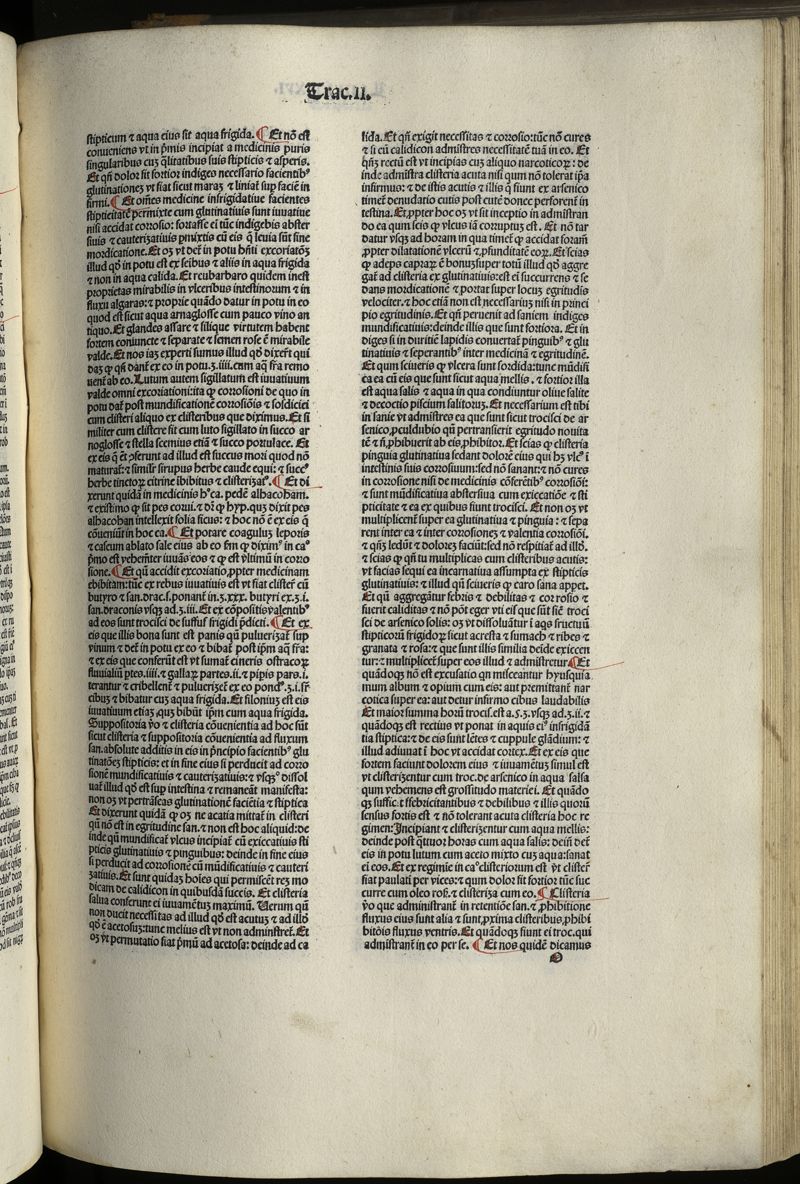 Trac.II.
stipticum ⁊ aqua eius sit aqua frigida. ¶ Et nō est
conueniens vt in ṗmis incipiat a medicinis puris
singularibus cuȝ q̄litatibus suis stipticis ⁊ asperis.
Et qn̄ dolor sit fortior indiges necessario facientibꝰ
glutinationeȝ vt fiat sicut maraȝ ⁊ liniat̄ suꝑ faciē in
firmi. ¶ Et om̄es medicine infrigidatiue facientes
stipticitatē permixte cum glutinatiuis sunt iuuatiue
nisi accidat corrosio: fortasse ei tūc indigebis abster
siuis ⁊ cauterizatiuis ꝑmixtis cū eis q̄ leuia sūt sine
mordicatione. Et oȝ vt det̄ in potu hn̄ti excoriatōȝ
illud qđ in potu est ex seibus ⁊ aliis in aqua frigida
⁊ non in aqua calida. Et reubarbaro quidem inest
proprietas mirabilis in vlceribus intestinorum ⁊ in
fluxu algaras: ⁊ proprie quādo datur in potu in eo
quod est sicut aqua arnaglosse cum pauco vino an
tiquo. Et glandes assare ⁊ silique virtutem habent
fortem coniuncte ⁊ separate ⁊ semen rose ē mirabile
valde. Et nos iaȝ experti sumus illud qđ dixer̄t qui
daȝ ꝙ qn̄ dant̄ ex eo in potu.ȝ.iiii.cum aq̄ fr̄a remo
uent̄ ab eo. Lutum autem sigillatum est iuuatiuum
valde omni excoriationi: ita ꝙ corrosioni de quo in
potu dat̄ post mundificationē corrosiōis ⁊ soldiciei
cum clisteri aliquo ex clisteribus que diximus. Et si
militer cum clistere fit cum luto sigillato in succo ar
noglosse ⁊ stella scemius etiā ⁊ succo portulace. Et
ex eis q̄ ēt ꝯferunt ad illud est succus mori quod nō
maturat̄: ⁊ similr̄ sirupus herbe caude equi: ⁊ succꝰ
herbe tinctoꝝ citrine ībibitus ⁊ clisterizatꝰ. ¶ Et di
xerunt quidā in medicinis hꝰ ca. pedē alhacoham.
⁊ existimo ꝙ sit pes corui. ⁊ dr̄ ꝙ hyp. quȝ dixit pes
alhacohan intellexit folia ficus: ⁊ hoc nō ē ex eis q̄
cōueniūt in hoc ca. ¶ Et potare coagulū leporis
⁊ caseum ablato sale eius ab eo fm ꝙ diximꝰ in caº
ṗmo est vehemēter iuuās eos ⁊ ꝙ est vltimū in corro
sione. ¶ Et qn̄ accidit excoriatio ꝓpter medicinam
ebibitam: tūc ex rebus iuuatiuis est vt fiat clister̄ cū
butyro ⁊ san. drac. ſ. ponant̄ in.ȝ.xxx. butyri ex.ȝ.i.
san. draconis vsqȝ ad.ȝ.iii. Et ex cōpositis valentibꝰ
ad eos sunt trocisci de suffuf frigidi ṗdicti. ¶ Et ex
eis que illis bona sunt est panis qn̄ pulueriȝat̄ suꝑ
vinum ⁊ det̄ in potu ex eo ⁊ bibat̄ post ip̄m aq̄ fr̄a:
⁊ ex eis que conferūt est vt sumat̄ cineris ostracoꝝ
fluuialiū ꝑtes.iiii. ⁊ gallaꝝ partes.ii. ⁊ pipis pars.i.
terantur ⁊ cribellent̄ ⁊ pulueriȝet̄ ex eo pondꝰ.ȝ.i.fr̄
cibis ⁊ bibatur cuȝ aqua frigida. Et filonius est eis
iuuatiuum etiaȝ quȝ bibūt ip̄m cum aqua frigida.
Suppositoria v̄o ⁊ clisteria cōuenientia ad hoc sūt
sicut clisteria ⁊ suppositoria cōuenientia ad fluxum
san. absolute additis in eis in ṗncipio facientibꝰ glu
tinatōeȝ stipticis: et in fine eius si perducit ad corro
sionē mundificatiuis ⁊ cauterizatiuis: ⁊ vsqȝꝫ dissol
uat̄ illud qđ est suꝑ intestina ⁊ remaneat̄ manifesta:
non oȝ vt pertrāseas glutinationē faciētia ⁊ stiptica
Et dixerunt quidā ꝙ oȝ ne acatia mittat̄ in clisteri
qn̄ nō est in egritudine san. ⁊ non est hoc aliquid: de
inde qn̄ mundificat̄ vlcus incipiat̄ cū exiccatiuis sti
pticis glutinatiuis ⁊ pinguibus: deinde in fine eius
si perducit ad corrosionē cū mūdificatiuis ⁊ cauteri
ȝatiuis. Et sunt quidaȝ hoīes qui permiscēt reȝ mo
dicam de calidicon in quibusdā succis. Et clisteria
salsa conferunt ei iuuamētuȝ maximū. Uerum qn̄
non ducit necessitas ad illud qđ est acutuȝ ⁊ ad illd̄
qđ ē acetosuȝ: tunc melius est vt non adminstrēt̄. Et
oȝ vt permutatio fiat ṗmū ad acetosa: deinde ad ca
lida. Et qn̄ exigit necessitas ⁊ corrosio: tūc nō cures
⁊ si cū calidicon admistres necessitatē tuā in eo. Et
qn̄ȝ rectū est vt incipias cuȝ aliquo narcoticoꝝ: de
inde admistra clisteria acuta nisi qum nō tolerat ip̄a
infirmus: ⁊ de istis acutis ⁊ illis q̄ fiunt ex arsenico
timet̄ denudatio cutis post cutē donec perforent̄ in
testina. Et ꝓpter hoc oȝ vt sit inceptio in administran
do ea qum scis ꝙ vlcus iā corruptuȝ est. Et nō tar
datur vsqȝ ad horam in qua timet̄ ꝙ accidat foram̄
ꝓpter dilatationē vlcerū ⁊ ꝓfunditatē eoꝝ. Et scias
ꝙ adeps capraꝝ ē bonus super totū illud qđ aggre
gat̄ ad clisteria ex glutinatiuis: est ei succurrens ⁊ se
dans mordicationē ⁊ portat super locuȝ egritudis
velociter. ⁊ hoc etiā non est necessariuȝ nisi in princi
pio egritudinis. Et qn̄ peruenit ad saniem indiges
mundificatiuis: deinde illis que sunt fortiora. Et in
diges si in duritiē lapidis conuertat̄ pinguibꝰ ⁊ glu
tinatiuis ⁊ seperantibꝰ inter medicinā ⁊ egritudinē.
Et qum sciueris ꝙ vlcera sunt sordida: tunc mūdifi
ca ea cū eis que sunt sicut aqua mellis. ⁊ fortior illa
est aqua salis ⁊ aqua in qua condiuntur oliue salite
⁊ decoctio pisciuȝ salitoruȝ. Et necessarium est tibi
in sanie vt admistres ea que sunt sicut trocisci de ar
senico, ꝓculdubio qn̄ pertransierit egritudo nouita
tē ⁊ n̄ ꝓhibuerit ab eis ꝓhibitor. Et scias ꝙ clisteria
pinguia glutinatiua sedant dolorē eius qui hȝ vlcꝰ ī
intestinis suis corrosiuum: sed nō sanant: ⁊ nō cures
in corrosione nisi de medicinis cōferētibꝰ corrosiōi:
⁊ sunt mūdificatiua abstersiua cum exiccatiōe ⁊ sti
pticitate ⁊ ea ex quibus fiunt trocisci. Et non oȝ vt
multiplicent̄ super ea glutinatiua ⁊ pinguia: ⁊ sepa
rent inter ea ⁊ inter corrosiones ⁊ valentia corrosiōi.
⁊ qn̄ȝ ledūt ⁊ doloreȝ faciūt: sed nō respitiāt ad illd̄.
⁊ scias ꝙ qn̄ tu multiplicas cum clisteribus acutis:
vt facias sequi ea incarnatiua assumpta ex stipticis
glutinatiuis: ⁊ illud qn̄ sciueris ꝙ caro sana appet.
Et qn̄ aggregātur febris ⁊ debilitas ⁊ corrosio ⁊
fuerit caliditas ⁊ nō pōt eger vti eisꝙ sūt sic̄ troci
sci de arsenico solis: oȝ vt dissoluātur ī aq̄s fructuū
stipticorū frigidoꝝ sicut acresta ⁊ sumach ⁊ ribes ⁊
granata ⁊ rosa: ⁊ que sunt illis similia deide exiccen
tur: ⁊ multiplicet̄ super eos illud ⁊ admistretur ¶ Et
quādoqȝ nō est excusatio qn̄ misceantur hyusquia
mum album ⁊ opium cum eis: aut premittant̄ nar
cotica super ea: aut detur infirmo cibus laudabilis
Et maior summa hoꝝ trocis. est a.5.ȝ. vsqȝ ad.ȝ.ii. ⁊
quādoqȝ est rectius vt ponat̄ in aquis eiꝰ infrigidā
tia stiptica: ⁊ de eis sunt lētes ⁊ cuppule glādium: ⁊
illud adiuuat ī hoc vt accidat cortex. Et ex eis que
fortem faciunt dolorem eius ⁊ iuuamētuȝ simul est
vt clisterizentur cum troc. de arsenico in aqua salsa
qum vehemens est grossitudo materiei. Et quādo
qȝ suffic. t̄ febricitantibus ⁊ debilibus ⁊ illis quorū
sensus fortis est ⁊ nō tolerant acuta clisteria hoc re
gimen: Incipiant ⁊ clisterizentur cum aqua mellis:
deinde post q̄ttuor horas cum aqua salis: dein̄ det̄
eis in potu lutum cum aceto mixto cuȝ aqua: sanat
ei eos. Et ex regimīe in caꝰ clisteriorum est vt clister̄
fiat paulati per vices: ⁊ qum dolor sit fortior tūc suc
curre cum oleo roſ. ⁊ clisteriȝa cum eo. ¶ Clisteria
v̄o que administrant̄ in retentiōe san. ⁊ ꝓhibitione
fluxus eius sunt alia ⁊ sunt ꝓxima clisteribus ꝓhibi
bitōis fluxus ventris. Et quādoqȝ fiunt ei troc. qui
admistrant̄ in eo per se. ¶ Et nos quidē dicamus
O